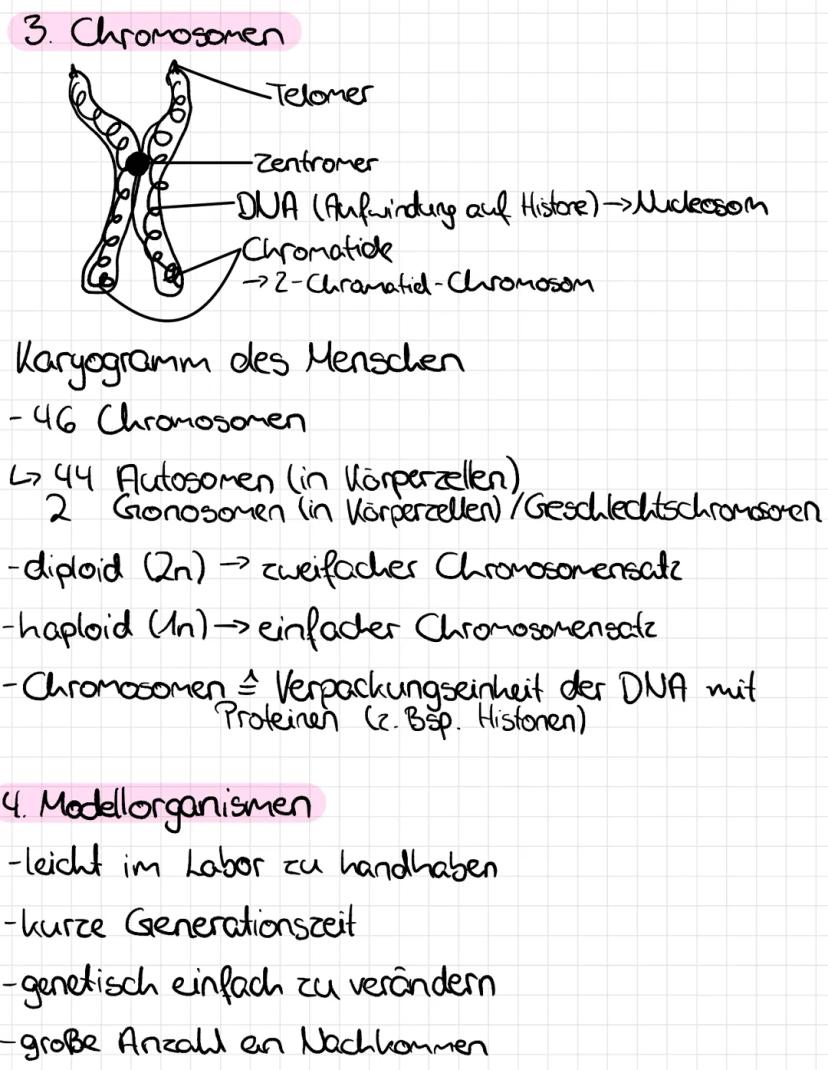 3. Chromosomen
Telomer
Zentromer
DNA (Aufwindung auf Histone) → Nucleosom
Chromatide
→ 2-Chromatid-Chromosom
Karyogramm des Menschen
- 46 Chromosomen
↳ 44 Autosomen (in Körperzellen)
2 Gonosomen (in Körperzellen) / Geschlechtschromosomen
- diploid (2n) → zweifacher Chromosomensatz
- haploid (1n) → einfacher Chromosomensatz
- Chromosomen ≙ Verpackungseinheit der DNA mit
Proteinen (z. Bsp. Histonen)
4. Modellorganismen
- leicht im Labor zu handhaben
- kurze Generationszeit
- genetisch einfach zu verändern
- große Anzahl an Nachkommen